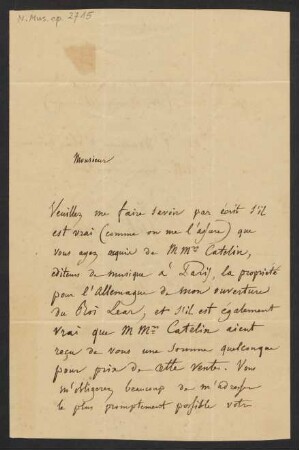 N. Mus. ep. 2715
Monsieur
Veuillez me faire savoir par écrit s'il
est vrai (comme on me l'assure) que
vous ayez acquis de MMrs Catelin,
éditeurs de musique à Paris, la propriété
pour l'Allemagne de mon ouverture
du Roi Lear, et s'il est également
vrai que MMrs Catelin aient
reçu de vous une somme quelconque
pour prix de cette vente. Vous
m'obligerez beaucoup de m'adresser
le plus promptement possible votre